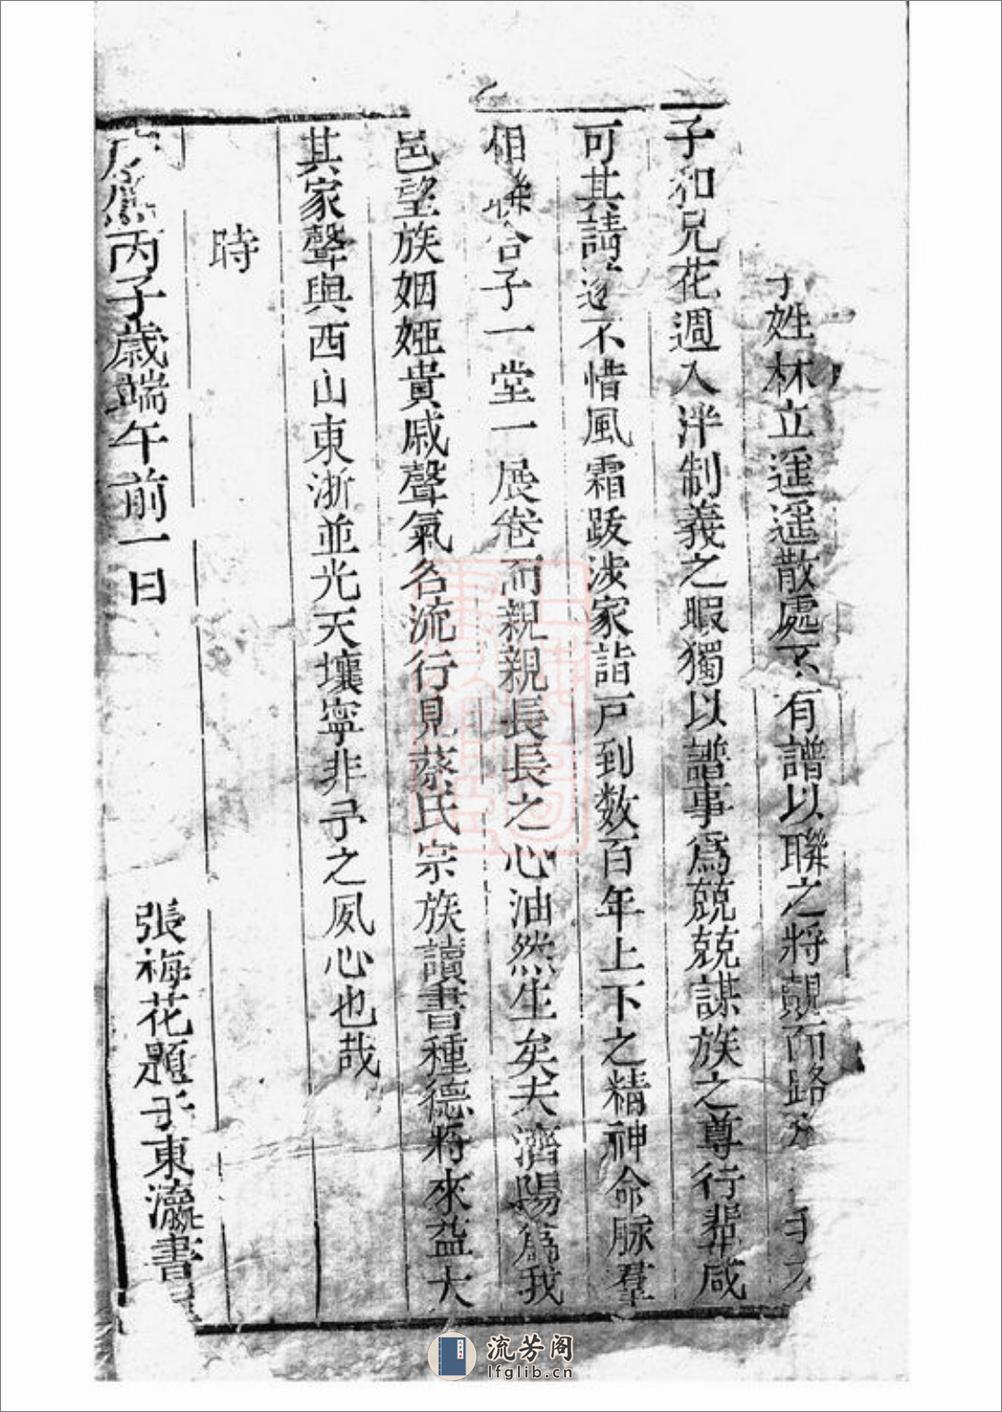 姓林立遥遥散處不有譜以聯之將覿而路
子和兄花週入泮制義之暇獨以譜事爲兢兢謀族之尊行輩咸
可其請遂不惜風霜跋涉家詣戸到数百年上下之精神命脉羣
相聯合子一堂一展卷而親親長長之心油然生矣夫濟陽爲我
邑望族姻婭貴戚聲氣名流行見蔡氏宗族讀書種德將來益大
其家聲與西山東浙並光天壤寧非予之夙心也哉
時
丙子歳端午前一日
張梅花題于東瀛書
流芳阁
lfglib.cn